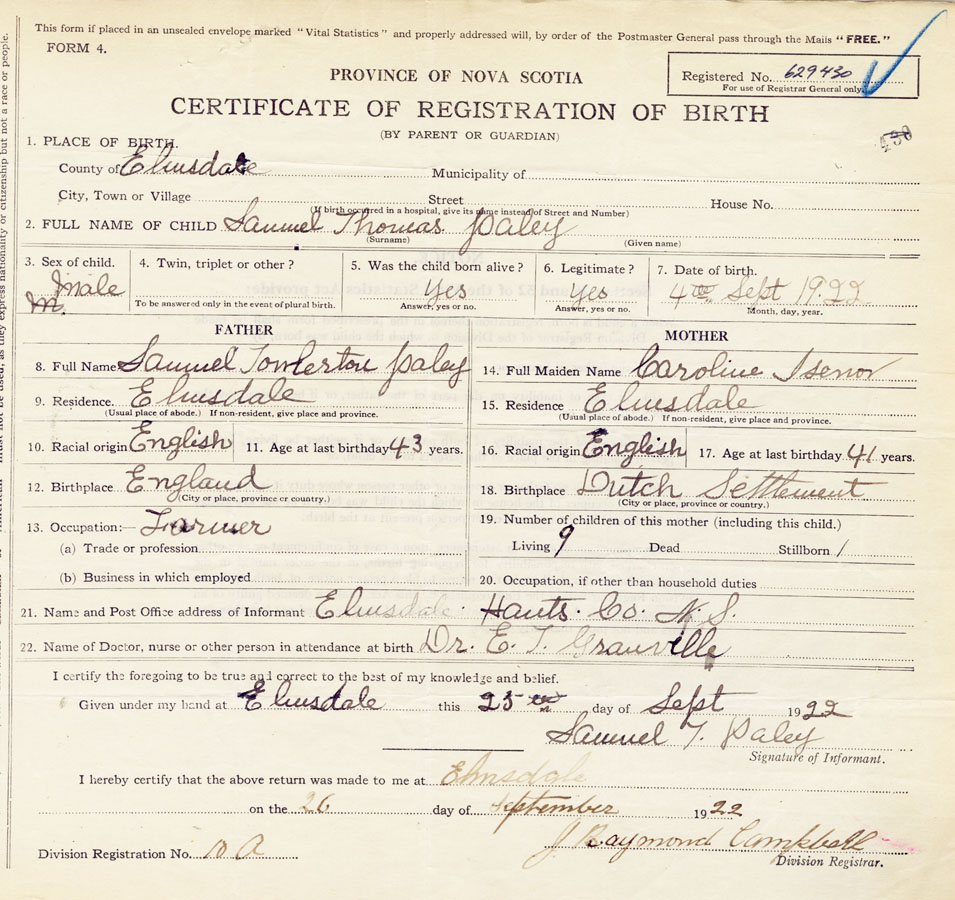 This form if placed in an unsealed envelope marked "Vital Statistics" and properly addressed will, by order of the Postmaster General pass through the Mails "FREE."
FORM 4.
PROVINCE OF NOVA SCOTIA
Registered No. 629430
For use of Registrar General only.
CERTIFICATE OF REGISTRATION OF BIRTH
(BY PARENT OR GUARDIAN)
430
1. PLACE OF BIRTH.
County of Elmsdale Municipality of
City, Town or Village Street House No.
(If birth occurred in a hospital, give its name instead of Street and Number)
2. FULL NAME OF CHILD Samuel Thomas Paley
(Surname) (Given name)
3. Sex of child. Male M.
4. Twin, triplet or other?
To be answered only in the event of plural birth.
5. Was the child born alive? Yes
Answer, yes or no.
6. Legitimate? Yes
Answer, yes or no.
7. Date of birth. 4th Sept 1922
Month, day, year.
FATHER
8. Full Name Samuel Towlerton Paley
9. Residence. Elmsdale
(Usual place of abode.) If non-resident, give place and province.
10. Racial origin English 11. Age at last birthday 43 years.
12. Birthplace England
(City or place, province or country.)
13. Occupation:— Farmer
(a) Trade or profession
(b) Business in which employed
MOTHER
14. Full Maiden Name Caroline Isenor
15. Residence Elmsdale
(Usual place of abode.) If non-resident, give place and province.
16. Racial origin English 17. Age at last birthday 41 years.
18. Birthplace Dutch Settlement
(City or place, province or country.)
19. Number of children of this mother (including this child.)
Living 9 Dead Stillborn 1
20. Occupation, if other than household duties
21. Name and Post Office address of Informant Elmsdale Hants. Co. N. S.
22. Name of Doctor, nurse or other person in attendance at birth Dr. E. T. Granville
I certify the foregoing to be true and correct to the best of my knowledge and belief.
Given under my hand at Elmsdale this 25th day of Sept 1922
Samuel T. Paley
Signature of Informant.
I hereby certify that the above return was made to me at Elmsdale
on the 26 day of September 1922
J Raymond Campbell
Division Registrar.
Division Registration No.